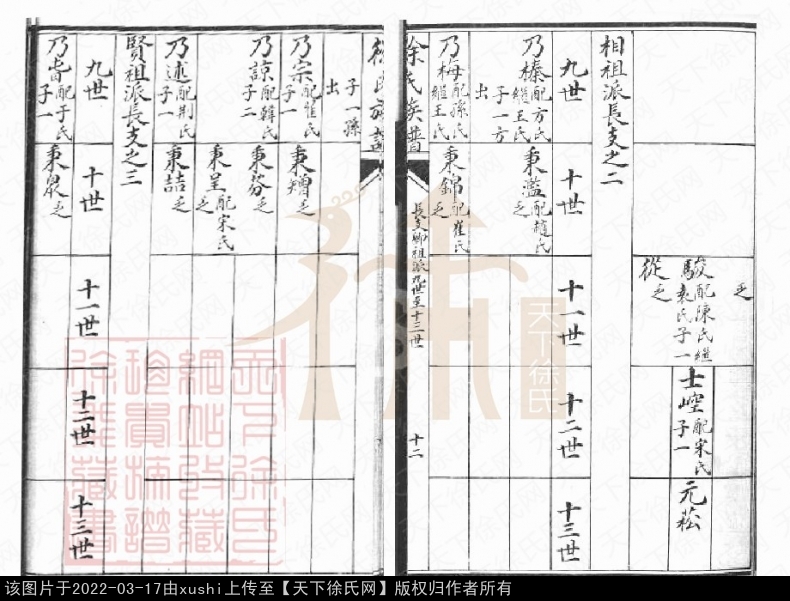 乏
駿配陳氏繼
袁氏子一
從乏
士崆配宋氏
子一
元菘
相祖派長支之二
九世
十世
十一世
十二世
十三世
乃榛配方氏
繼王氏
子一方
出
秉濫配趙氏
乏
乃梅配孫氏
繼王氏
秉錦配崔氏
乏
徐氏族譜
長支卿祖派九世至十三世
十二
子一孫
出
乃宗配崔氏
子一
秉矰乏
乃諒配韓氏
子二
秉芬乏
秉呈配宋氏
乏
乃述配荆氏
子一
秉喆乏
賢祖派長支之三
九世
十世
十一世
十二世
十三世
配于氏
子一
秉泉乏
天下徐氏
天下徐氏
網站收藏
珍貴族譜
徐業藏書
该图片于2022-03-17由xushi上传至【天下徐氏网】版权归作者所有